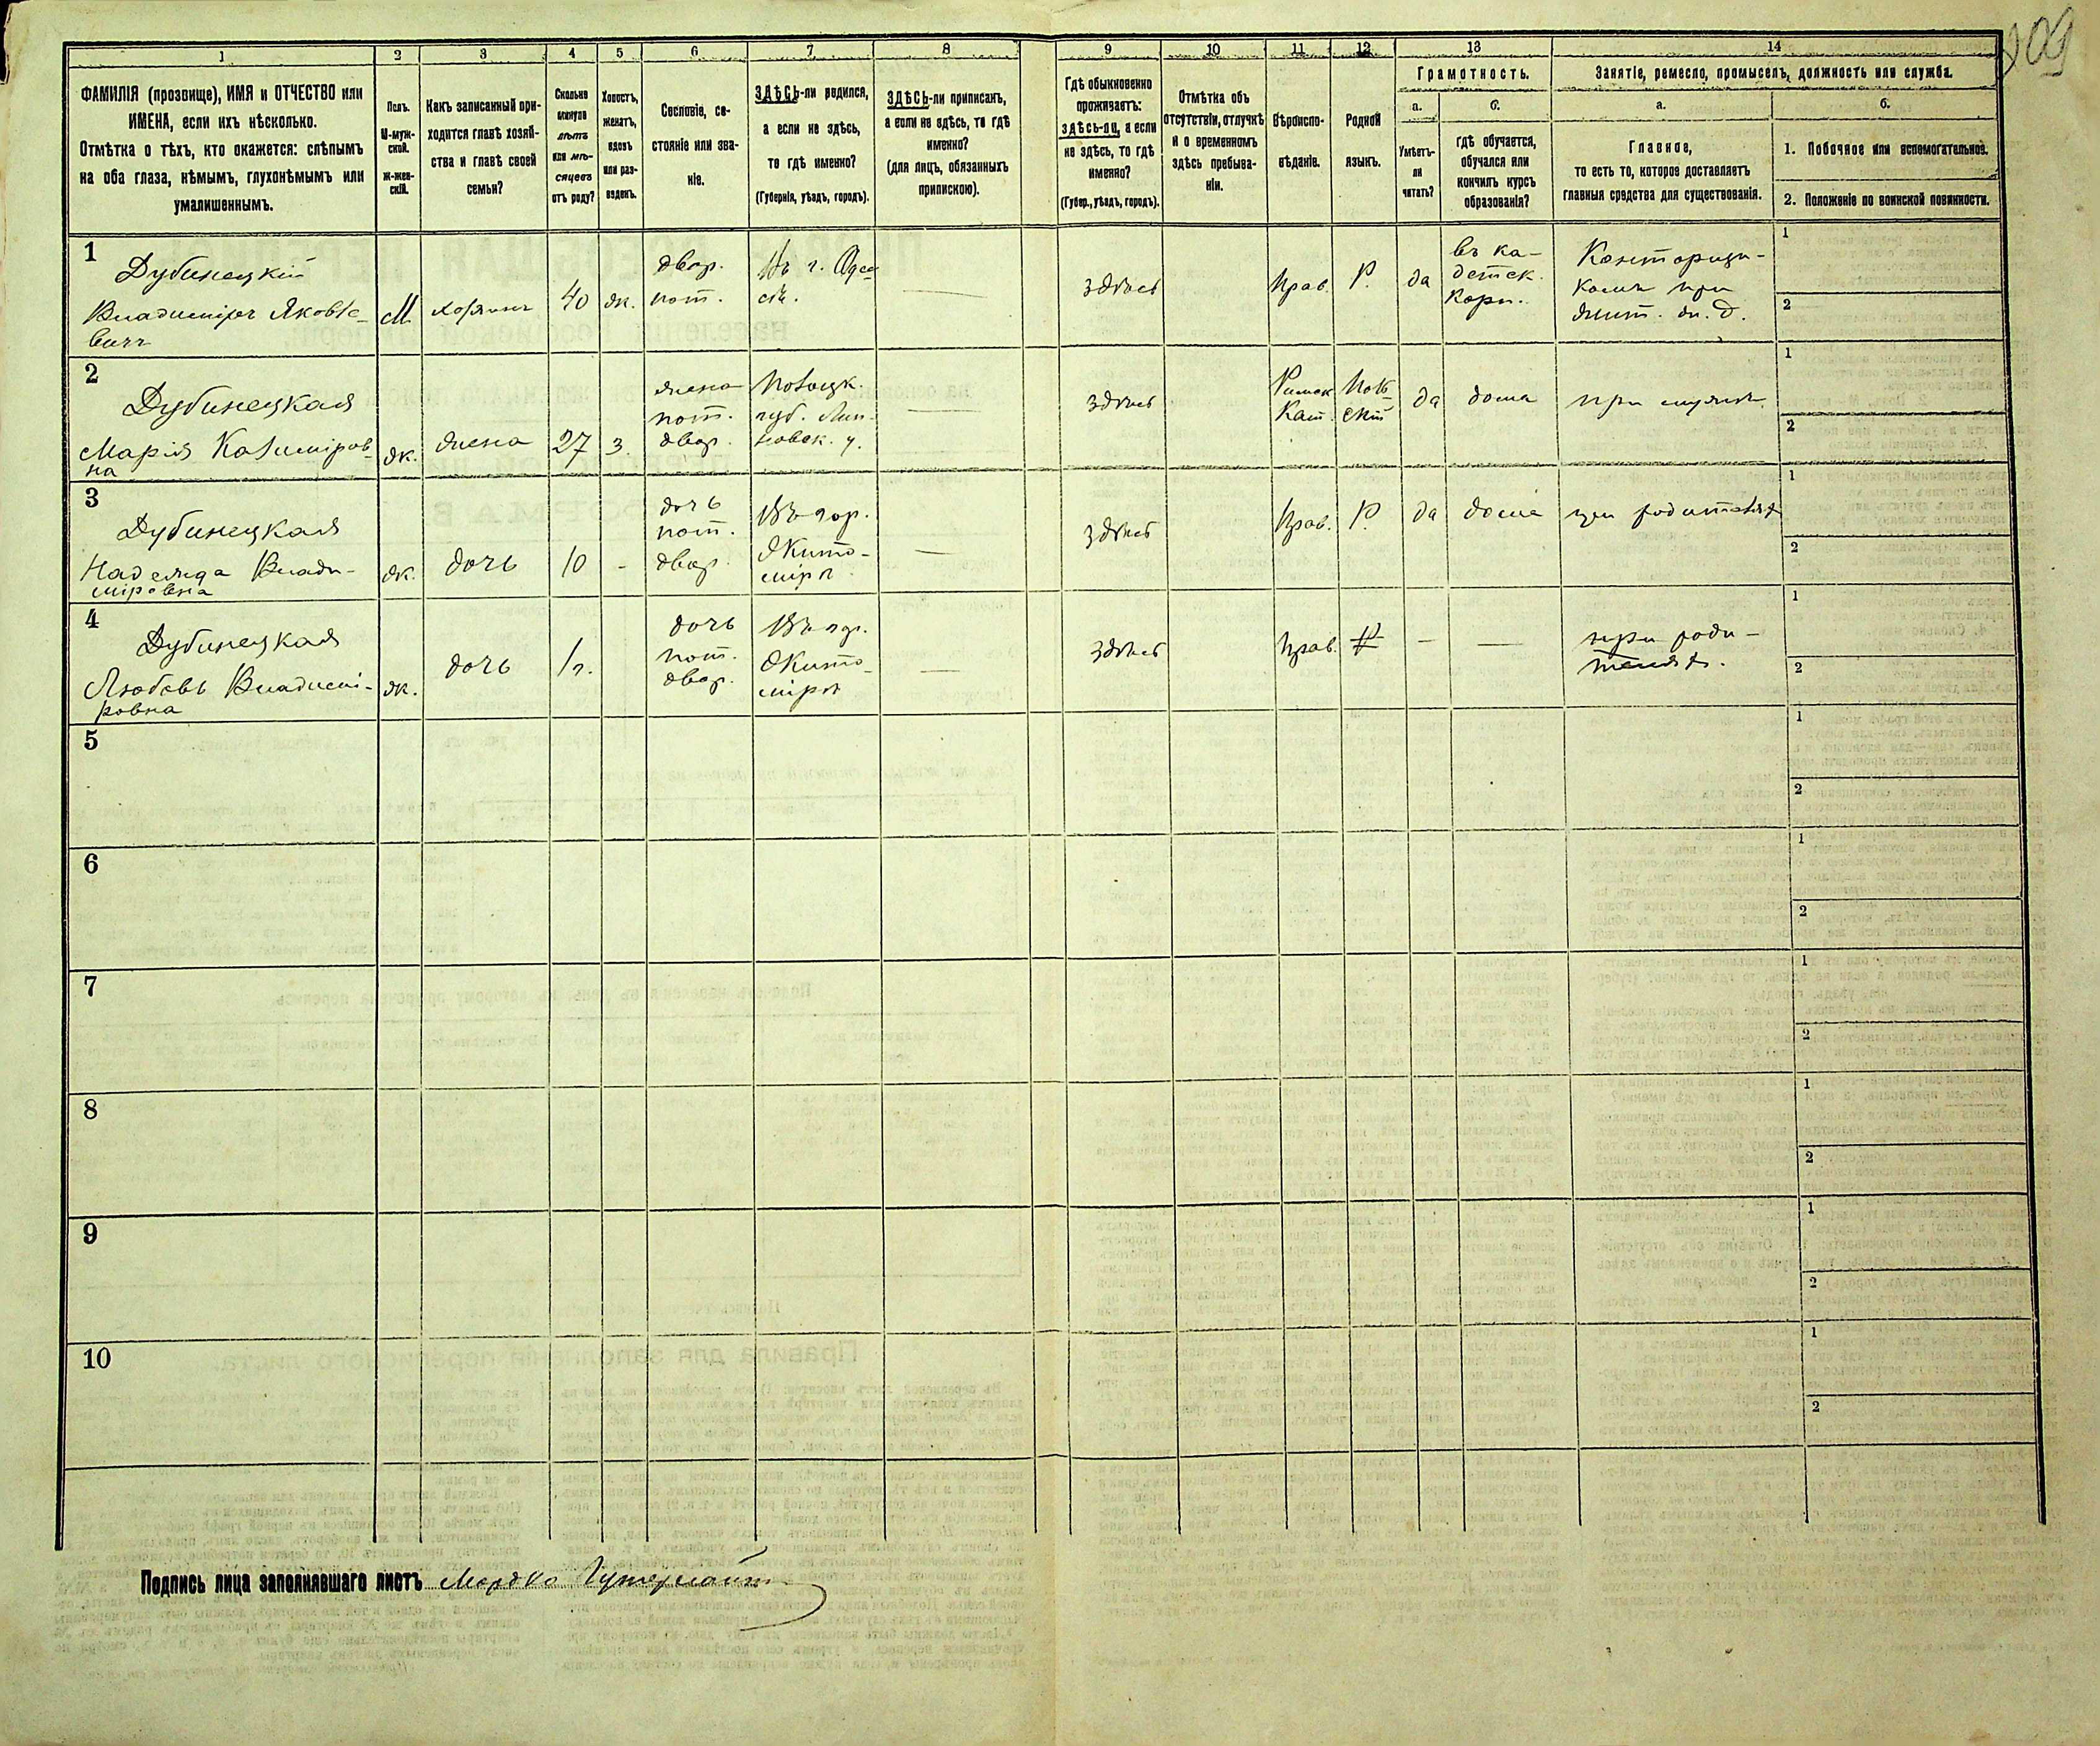 109
1
2
3
4
5
6
7
8
9
10
11
12
13
14
ФАМИЛІЯ (прозвище), ИМЯ и ОТЧЕСТВО или
ИМЕНА, если ихъ нѣсколько.
Отмѣтка о тѣхъ, кто окажется: слѣпымъ
на оба глаза, нѣмымъ, глухонѣмымъ или
умалишеннымъ.
Полъ.
М-муж-
ской.
Ж-жен-
скій.
Какъ записанный при-
ходится главѣ хозяй-
ства и главѣ своей
семьи?
Сколько
минуло
лѣтъ
или мѣ-
сяцевъ
отъ роду?
Холостъ,
женатъ,
вдовъ
или раз-
веденъ.
Сословіе, со-
стояніе или зва-
ніе.
ЗДѢСЬ-ли родился,
а если не здѣсь,
то гдѣ именно?
(Губернія, уѣздъ, городъ).
ЗДѢСЬ-ли приписанъ,
а если не здѣсь, то гдѣ
именно?
(для лицъ, обязанныхъ
припискою).
Гдѣ обыкновенно
проживаетъ:
здѣсь-ли, а если
не здѣсь, то гдѣ
именно?
(Губер., уѣздъ, городъ).
Отмѣтка объ
отсутствіи, отлучкѣ
и о временномъ
здѣсь пребыва-
ніи.
Вѣроиспо-
вѣданіе.
Родной
языкъ.
Грамотность.
а.
Умѣетъ-
ли
читать?
б.
гдѣ обучается,
обучался или
кончилъ курсъ
образованія?
Занятіе, ремесло, промыселъ, должность или служба.
а.
Главное,
то есть то, которое доставляетъ
главныя средства для существованія.
б.
1. Побочное или вспомогательное.
2. Положеніе по воинской повинности.
1
Дубинецкій
Владиміръ Яковле-
вичъ
М
хозяинъ
40
ж.
двор.
пот.
Въ г. Одес
сѣ.
—
здѣсь
Прав.
Р.
да
въ ка-
детск.
корп.
Конторщи-
комъ при
жит. ж. д.
1
2
2
Дубинецкая
Марія Казиміров-
на
ж.
жена
27
з.
жена
пот.
двор.
губ.
у.
—
здѣсь
Римск
Кат.
да
дома
при мужѣ
1
2
3
Дубинецкая
Надежда Влади-
міровна
ж.
дочь
10
-
дочь
пот.
двор.
Въ гор.
Жито-
мірѣ
—
здѣсь
Прав.
Р.
да
дома
при родителях
1
2
4
Дубинецкая
Любовь Владимі-
ровна
ж.
дочь
1 г.
дочь
пот.
двор.
Въ гор.
Жито-
мірѣ
—
здѣсь
Прав.
—
—
при роди-
теляхъ.
1
2
5
1
2
6
1
2
7
1
2
8
1
2
9
1
2
10
1
2
Подпись лица заполнявшаго листъ Мордко